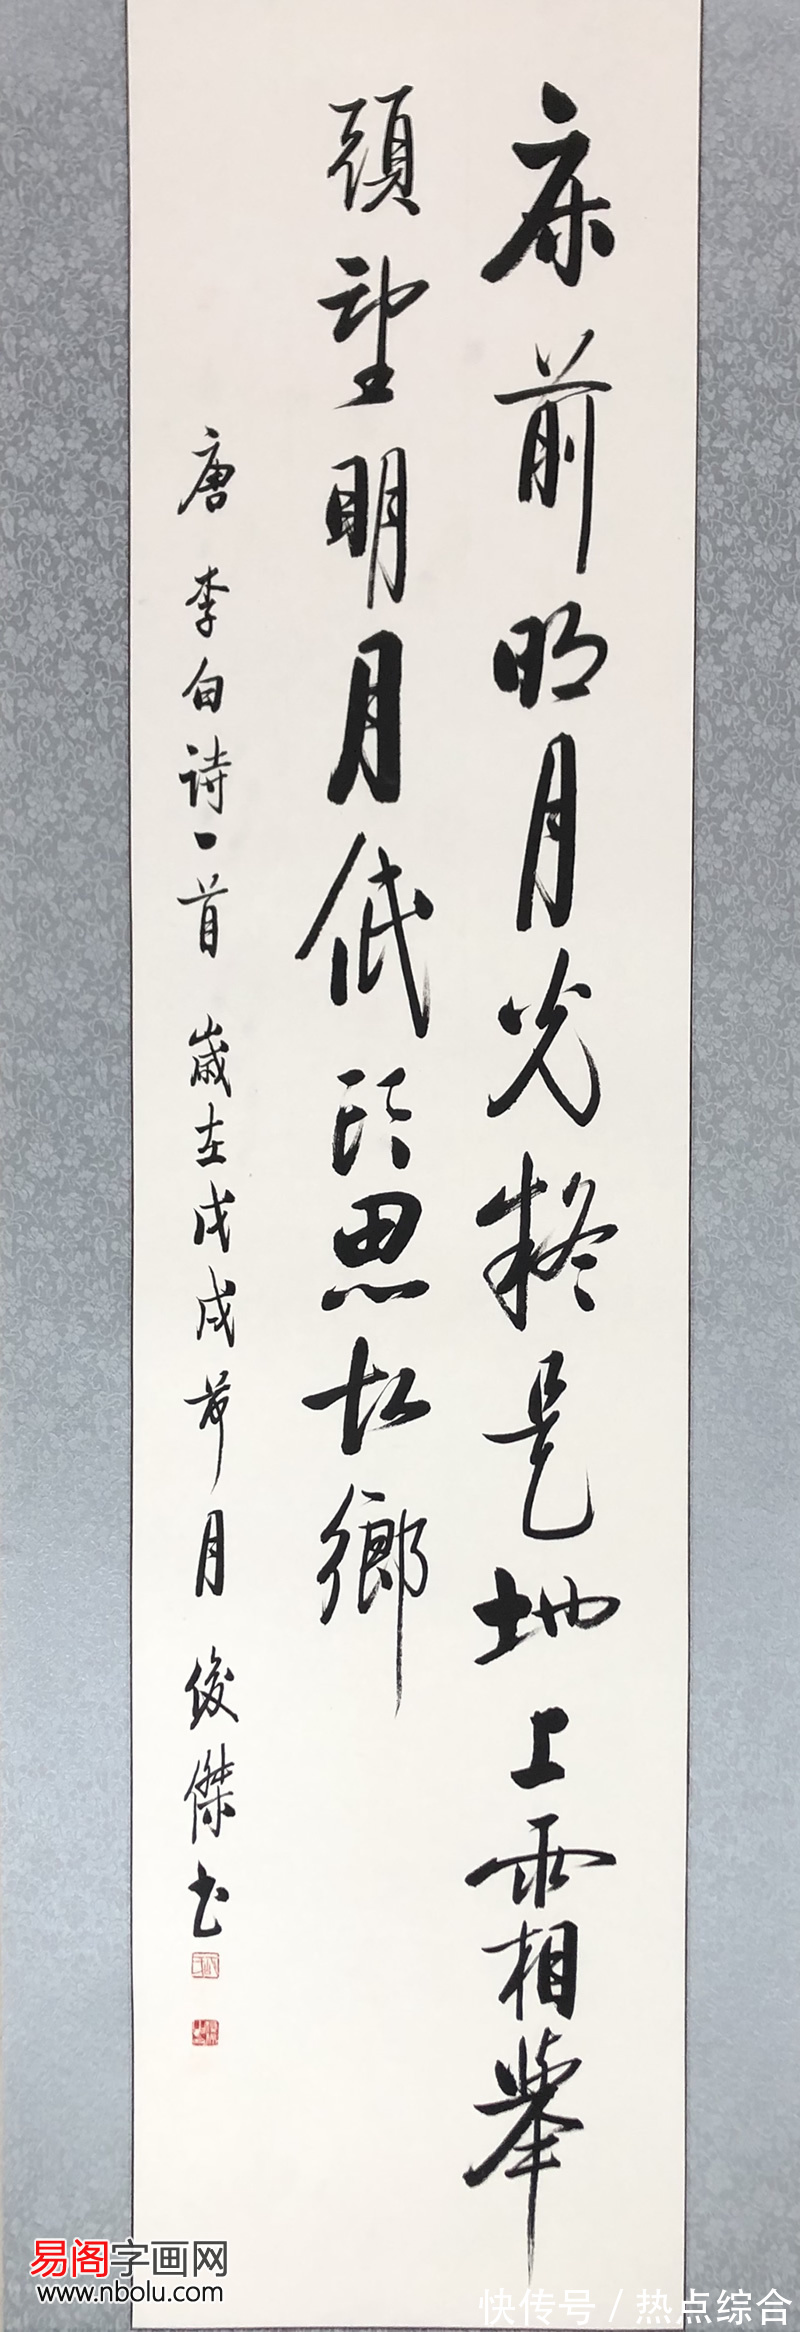 床前明月光疑是地上霜舉
頭望明月低頭思故鄉
唐 李白詩一首 歲在戊戌荷月 俊傑书
易阁字画网
www.nbolu.com
快传号 / 热点综合